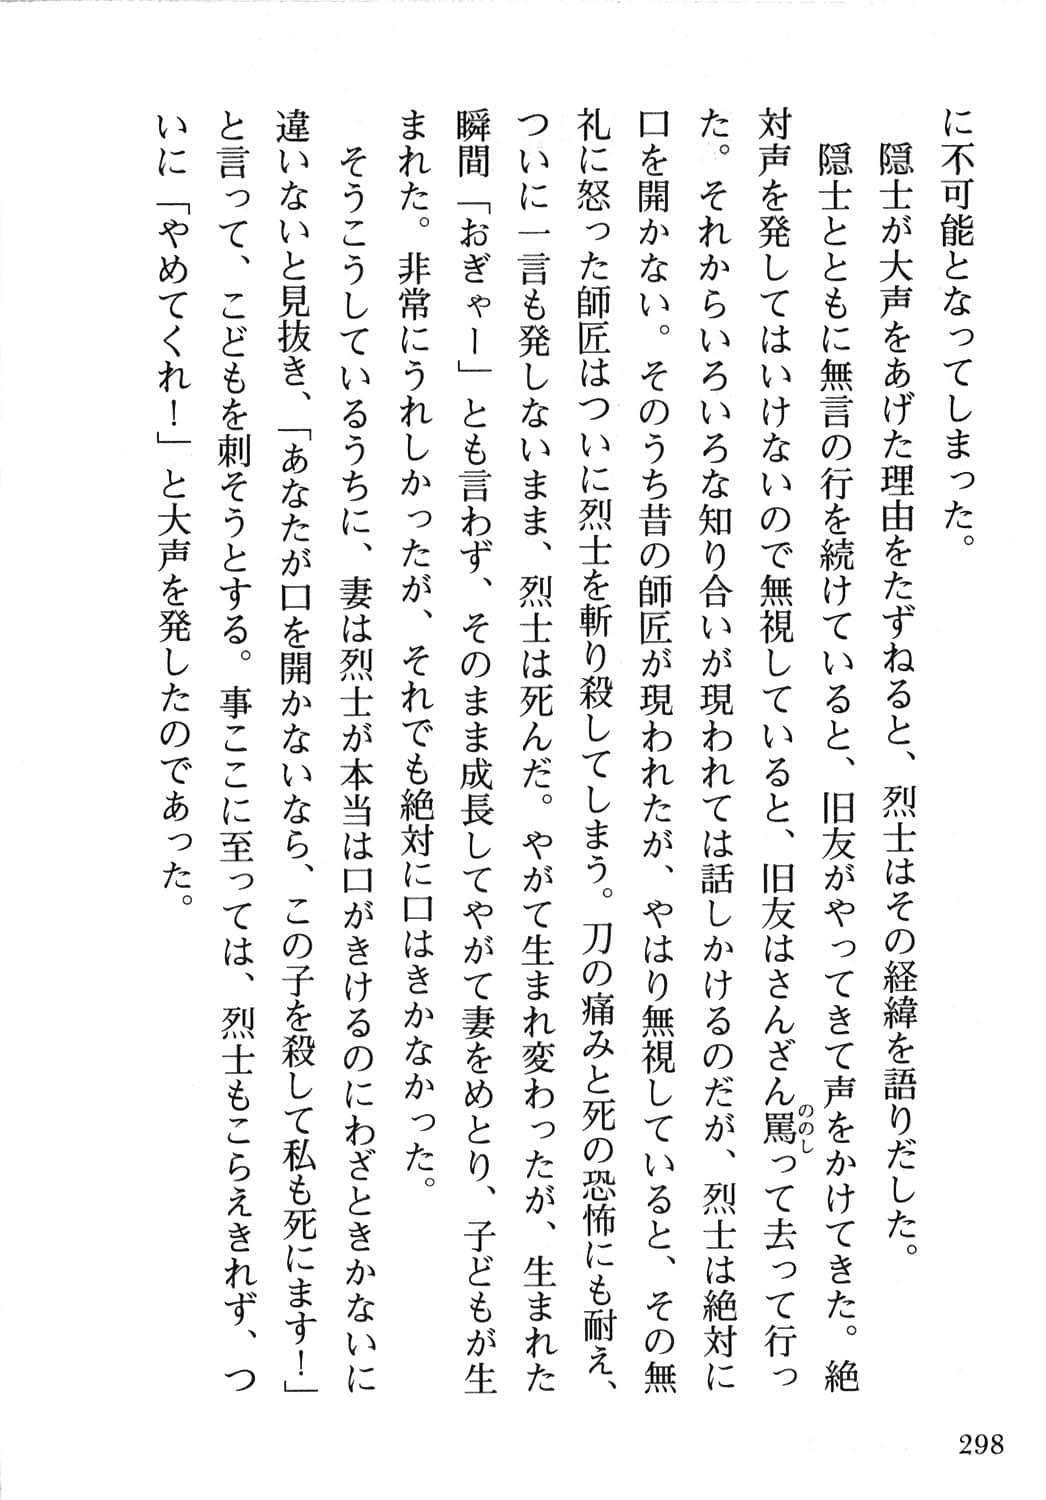 に不可能となってしまった。
隠士が大声をあげた理由をたずねると、烈士はその経緯を語りだした。
隠士とともに無言の行を続けていると、旧友がやってきて声をかけてきた。絶
対声を発してはいけないので無視していると、旧友はさんざん罵って去って行っ
ののし
た。それからいろいろな知り合いが現われては話しかけるのだが、烈士は絶対に
口を開かない。そのうち昔の師匠が現われたが、やはり無視していると、その無
礼に怒った師匠はついに烈士を斬り殺してしまう。刀の痛みと死の恐怖にも耐え、
ついに一言も発しないまま、烈士は死んだ。やがて生まれ変わったが、生まれた
瞬間「おぎゃー」とも言わず、そのまま成長してやがて妻をめとり、子どもが生
まれた。非常にうれしかったが、それでも絶対に口はきかなかった。
そうこうしているうちに、妻は烈士が本当は口がきけるのにわざときかないに
違いないと見抜き、「あなたが口を開かないなら、この子を殺して私も死にます！」
と言って、こどもを刺そうとする。事ここに至っては、烈士もこらえきれず、つ
いに「やめてくれ！」と大声を発したのであった。
298